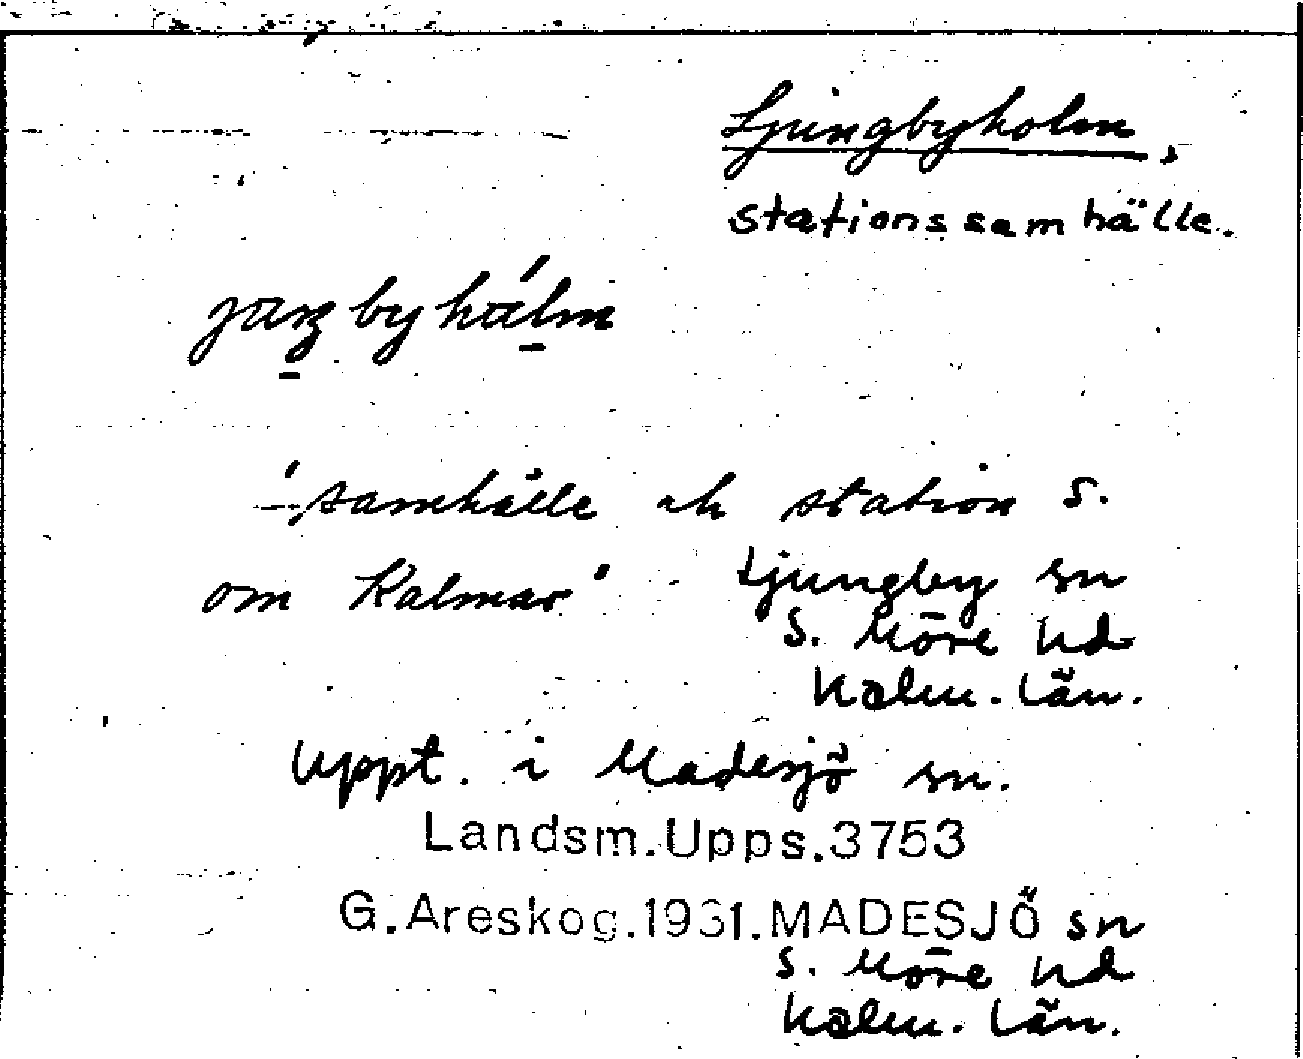 Ljungbyholm,
stationssamhälle.
"samhälle och station s.
om Kalmar" Ljungby sn
S. Möre hd
Kalm. län.
Uppt. i Madesjö sn.
Landsm.Upps.3753
G.Areskog.1931.MADESJÖ sn
S. Möre hd
Kalm. län.